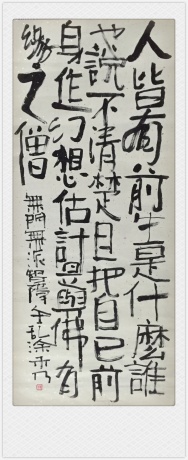 人皆有前生是什麼誰
也說不清楚且把自己前
身作幻想估計 與佛有
緣之僧
無門無派